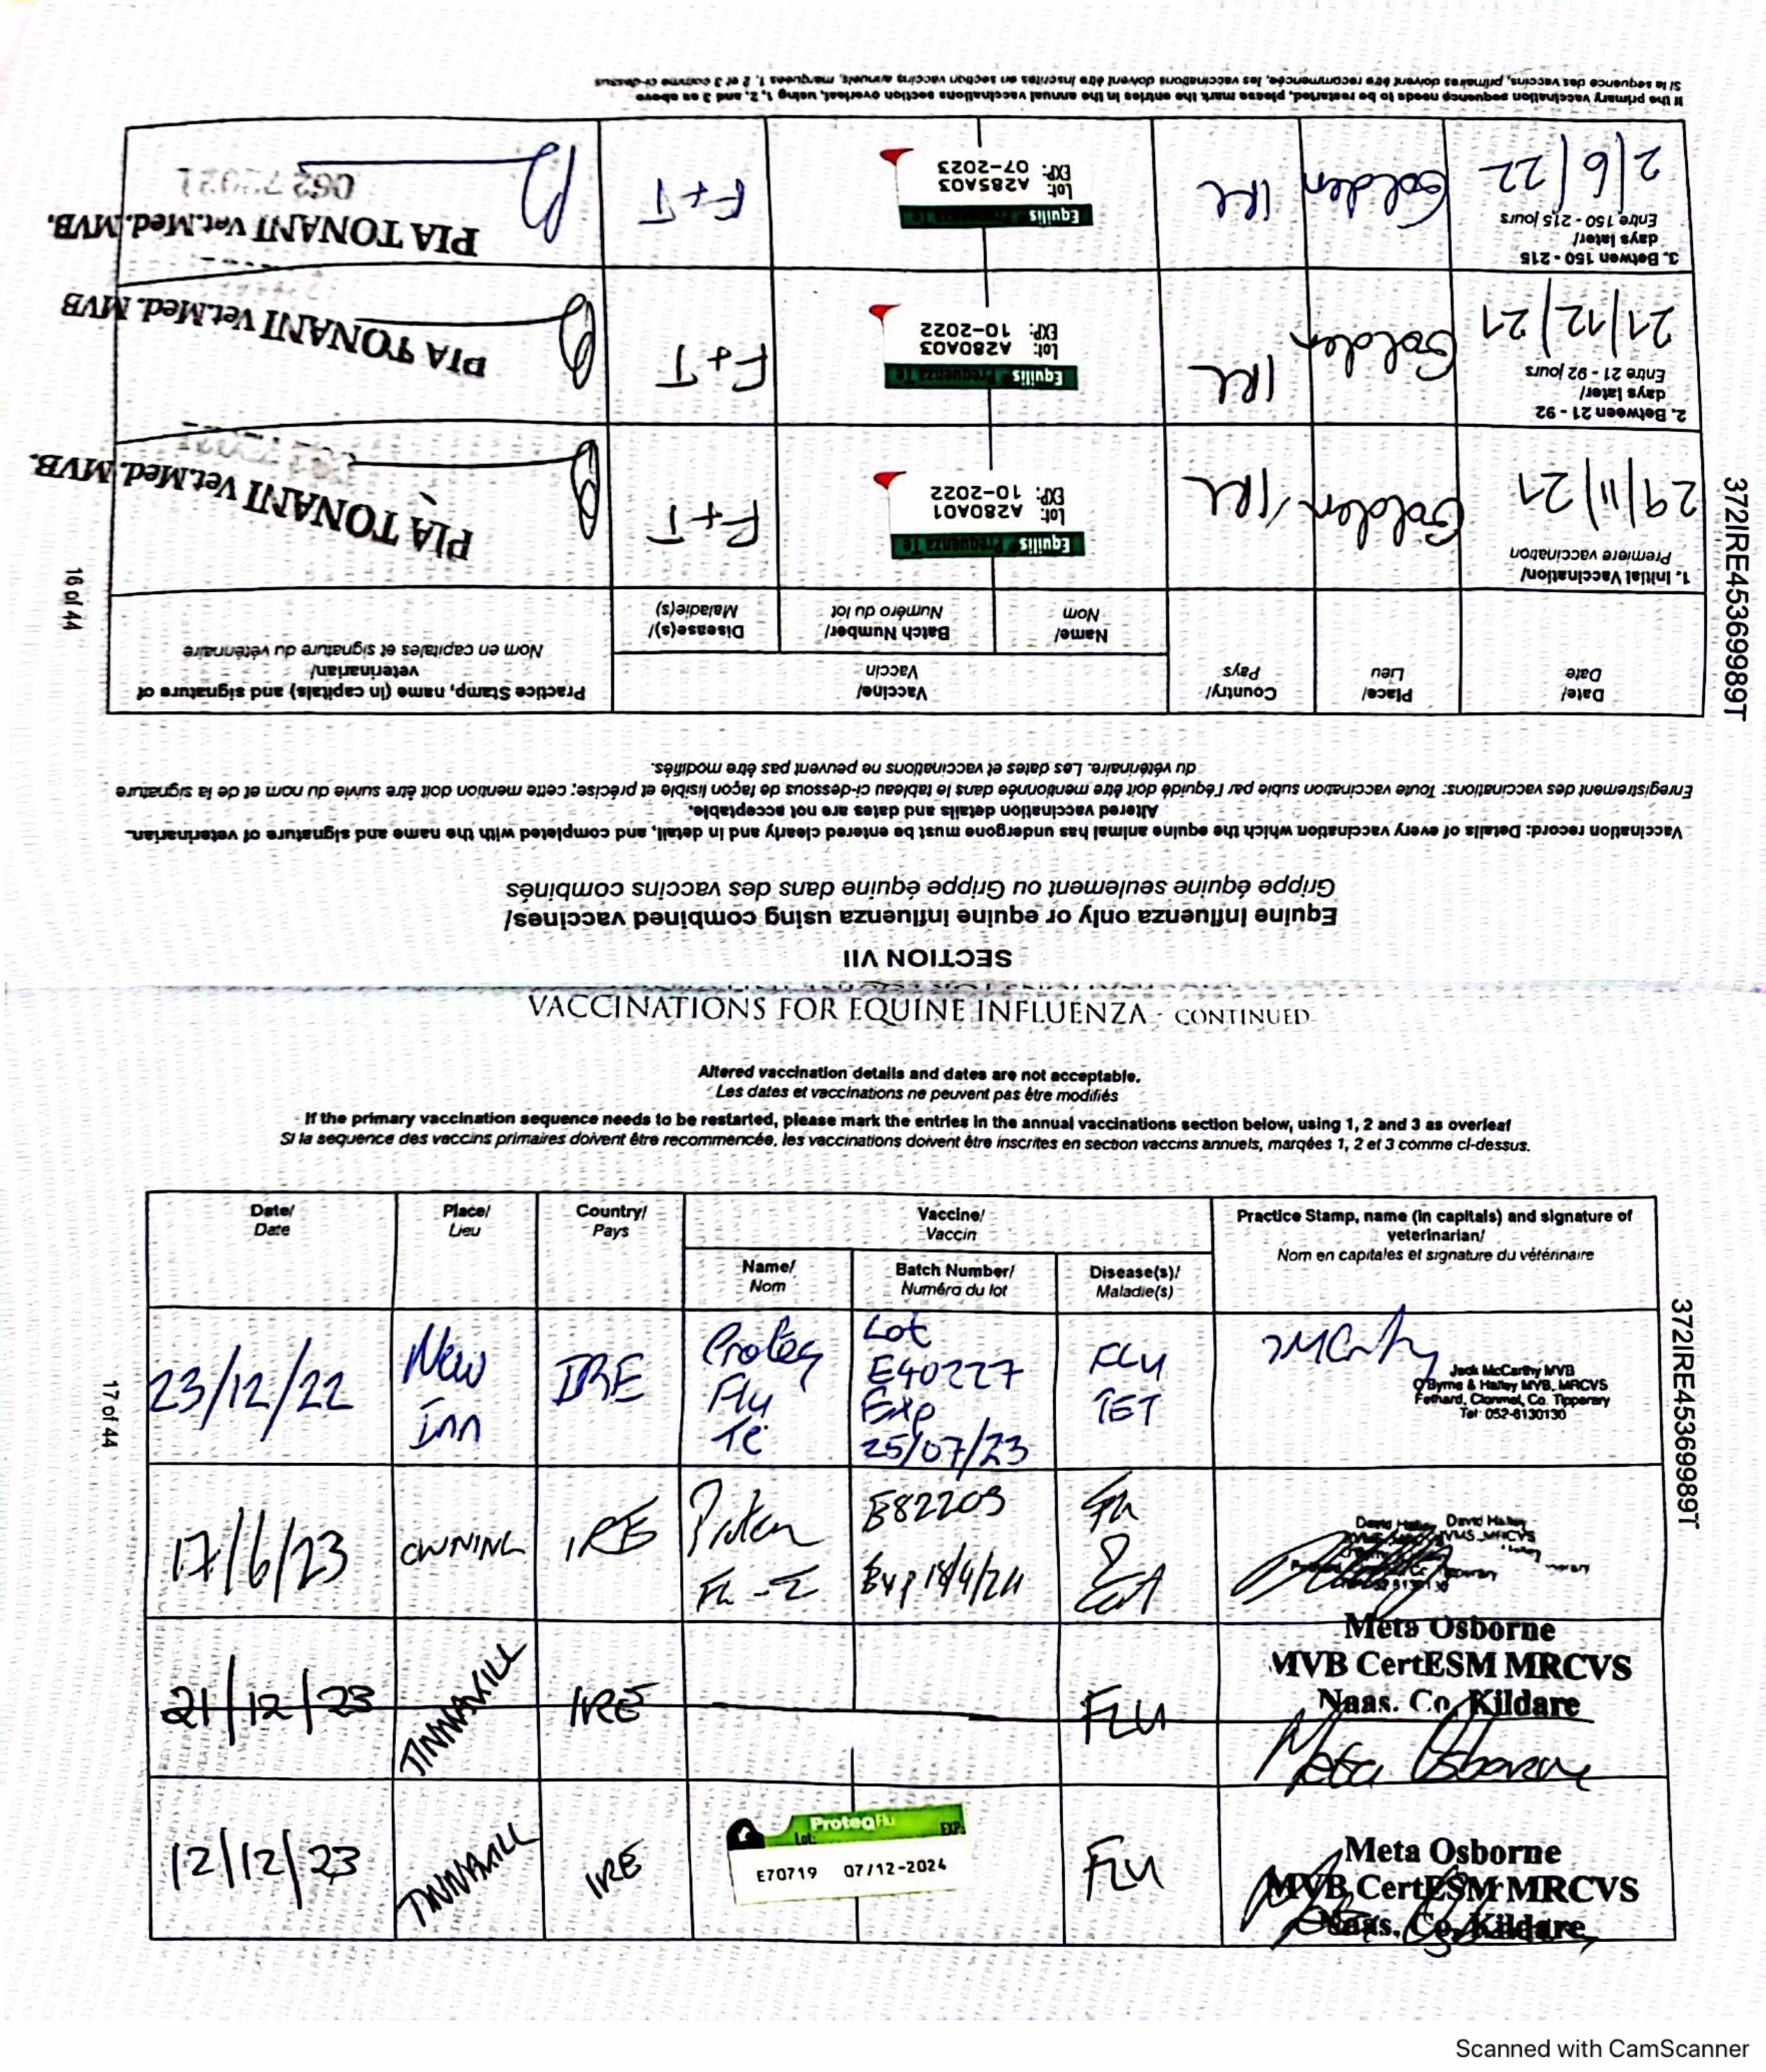 SECTION VII
Equine Influenza only or equine influenza using combined vaccines/
Grippe équine seulement ou Grippe équine dans des vaccins combinés
Vaccination record: Details of every vaccination which the equine animal has undergone must be entered clearly and in detail, and completed with the name and signature of veterinarian.
Altered vaccination details and dates are not acceptable.
Enregistrement des vaccinations: Toute vaccination subie par l'équidé doit être mentionnée dans le tableau ci-dessous de façon lisible et précise; cette mention doit être suivie du nom et de la signature
du vétérinaire. Les dates et vaccinations ne peuvent pas être modifiés.
Date/
Date
Place/
Lieu
Country/
Pays
Vaccine/
Vaccin
Name/
Nom
Batch Number/
Numéro du lot
Disease(s)/
Maladie(s)
Practice Stamp, name (in capitals) and signature of
veterinarian/
Nom en capitales et signature du vétérinaire
1. Initial Vaccination/
Premiere vaccination
29/11/21
Golden
IRL
Equilis Prequenza Te
Lot: A280A01
EXP: 10-2022
F+T
PIA TONANI Vet.Med. MVB.
2. Between 21 - 92
days later/
Entre 21 - 92 jours
21/12/21
Golden
IRL
Equilis Prequenza Te
Lot: A280A03
EXP: 10-2022
F+T
PIA TONANI Vet.Med. MVB
3. Betwen 150 - 215
days later/
Entre 150 - 215 jours
2/6/22
Golden
IRL
Equilis Prequenza Te
Lot: A285A03
EXP: 07-2023
F+T
PIA TONANI Vet.Med. MVB.
If the primary vaccination sequence needs to be restarted, please mark the entries in the annual vaccinations section overleaf, using 1, 2, and 3 as above
Si la séquence des vaccins, primaires doivent être recommencée, les vaccinations doivent être inscrites en section vaccins annuels, marquées 1, 2 et 3 comme ci-dessus
16 of 44
372IRE45369989T
VACCINATIONS FOR EQUINE INFLUENZA - CONTINUED
Altered vaccination details and dates are not acceptable.
Les dates et vaccinations ne peuvent pas être modifiés
If the primary vaccination sequence needs to be restarted, please mark the entries in the annual vaccinations section below, using 1, 2 and 3 as overleaf
Si la sequence des vaccins primaires doivent être recommencée, les vaccinations doivent être inscrites en section vaccins annuels, marqées 1, 2 et 3 comme ci-dessus.
Date/
Date
Place/
Lieu
Country/
Pays
Vaccine/
Vaccin
Name/
Nom
Batch Number/
Numéro du lot
Disease(s)/
Maladie(s)
Practice Stamp, name (in capitals) and signature of
veterinarian/
Nom en capitales et signature du vétérinaire
23/12/22
New
Inn
IRE
Proteq
Flu
Te
Lot
E40227
Exp
25/07/23
FLU
TET
Jack McCarthy MVB
O'Byrne & Halley MVB, MRCVS
Fethard, Clonmel, Co. Tipperary
Tel: 052-6130130
17/6/23
OWNING
IRE
E82203
Exp 18/4/24
David Halley
21/12/23
TINNAKILL
IRE
FLU
Meta Osborne
MVB CertESM MRCVS
Naas. Co. Kildare
Meta Osborne
12/12/23
TINNAKILL
IRE
ProteqFlu
Lot: EXP:
E70719 07/12-2024
FLU
Meta Osborne
MVB CertESM MRCVS
Naas. Co. Kildare
17 of 44
372IRE45369989T
Scanned with CamScanner